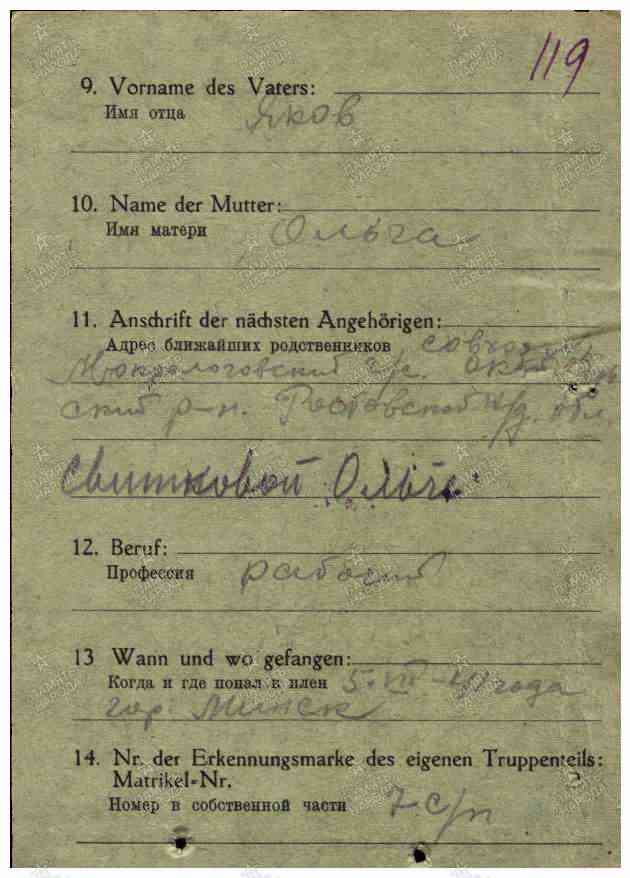 119
9. Vorname des Vaters:
Имя отца Яков
10. Name der Mutter:
Имя матери Ольга
11. Anschrift der nächsten Angehörigen:
Адрес ближайших родственников совхоз
с/с. Октябрь
ский р-н. Ростовской н/д. обл.
Свитковой Ольге
12. Beruf:
Профессия рабочий
13 Wann und wo gefangen:
Когда и где попал в плен 5. VII - 41 года
гор. Минск
14. Nr. der Erkennungsmarke des eigenen Truppenteils:
Matrikel-Nr.
Номер в собственной части 7 с/п